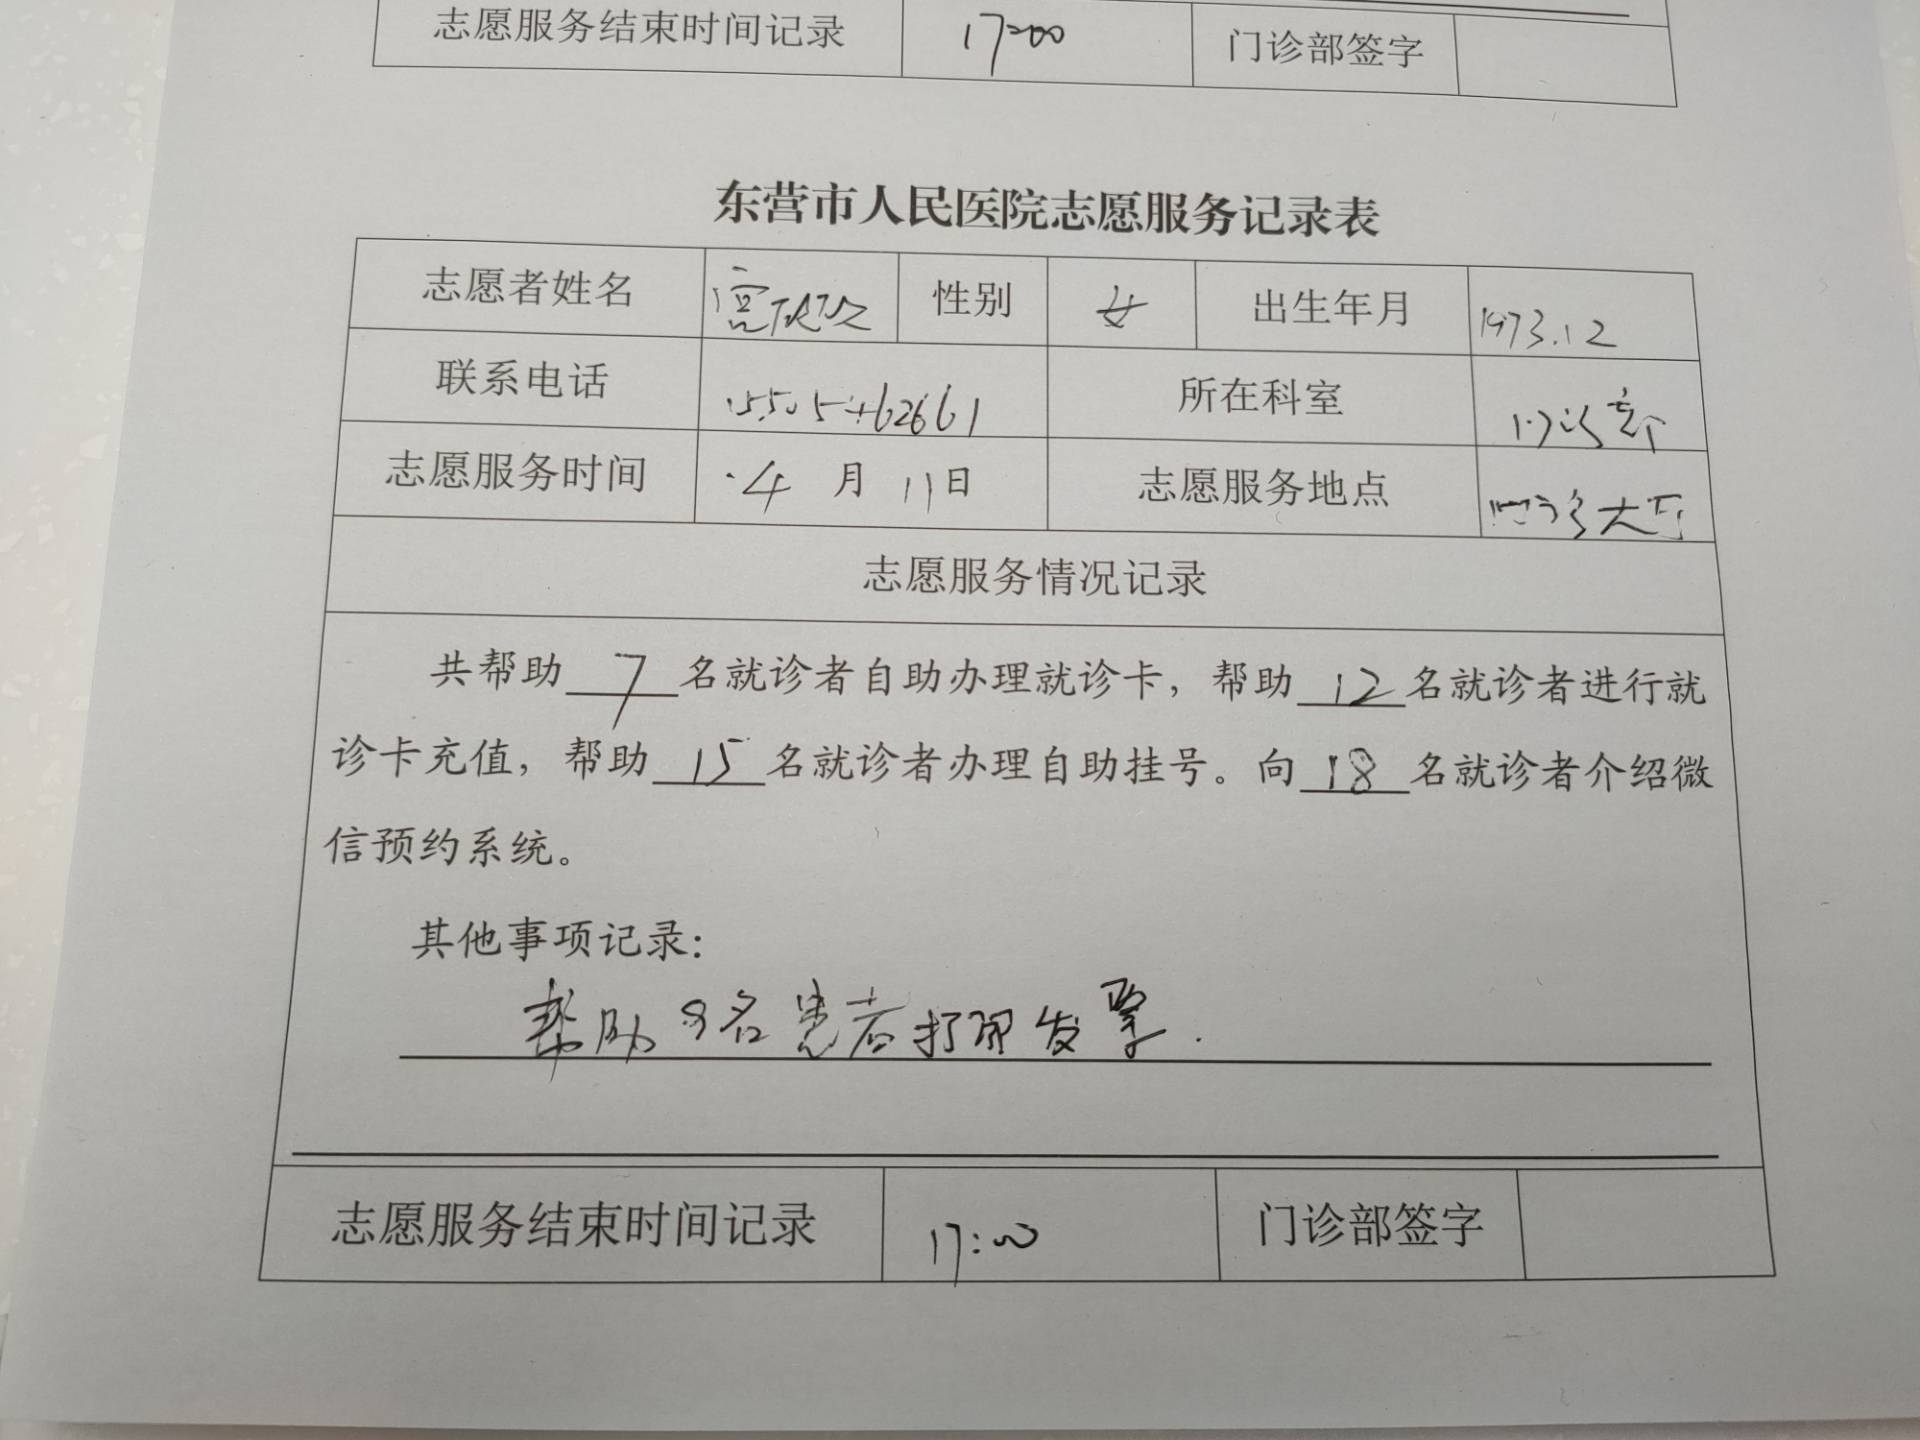 志愿服务结束时间记录 17:00 门诊部签字
东营市人民医院志愿服务记录表
志愿者姓名 性别 女 出生年月 1973.12
联系电话 15505462661 所在科室
志愿服务时间 4月11日 志愿服务地点 门诊大厅
志愿服务情况记录
共帮助 7 名就诊者自助办理就诊卡，帮助 12 名就诊者进行就
诊卡充值，帮助 15 名就诊者办理自助挂号。向 18 名就诊者介绍微
信预约系统。
其他事项记录：
帮助8名患者打印发票.
志愿服务结束时间记录 17:00 门诊部签字